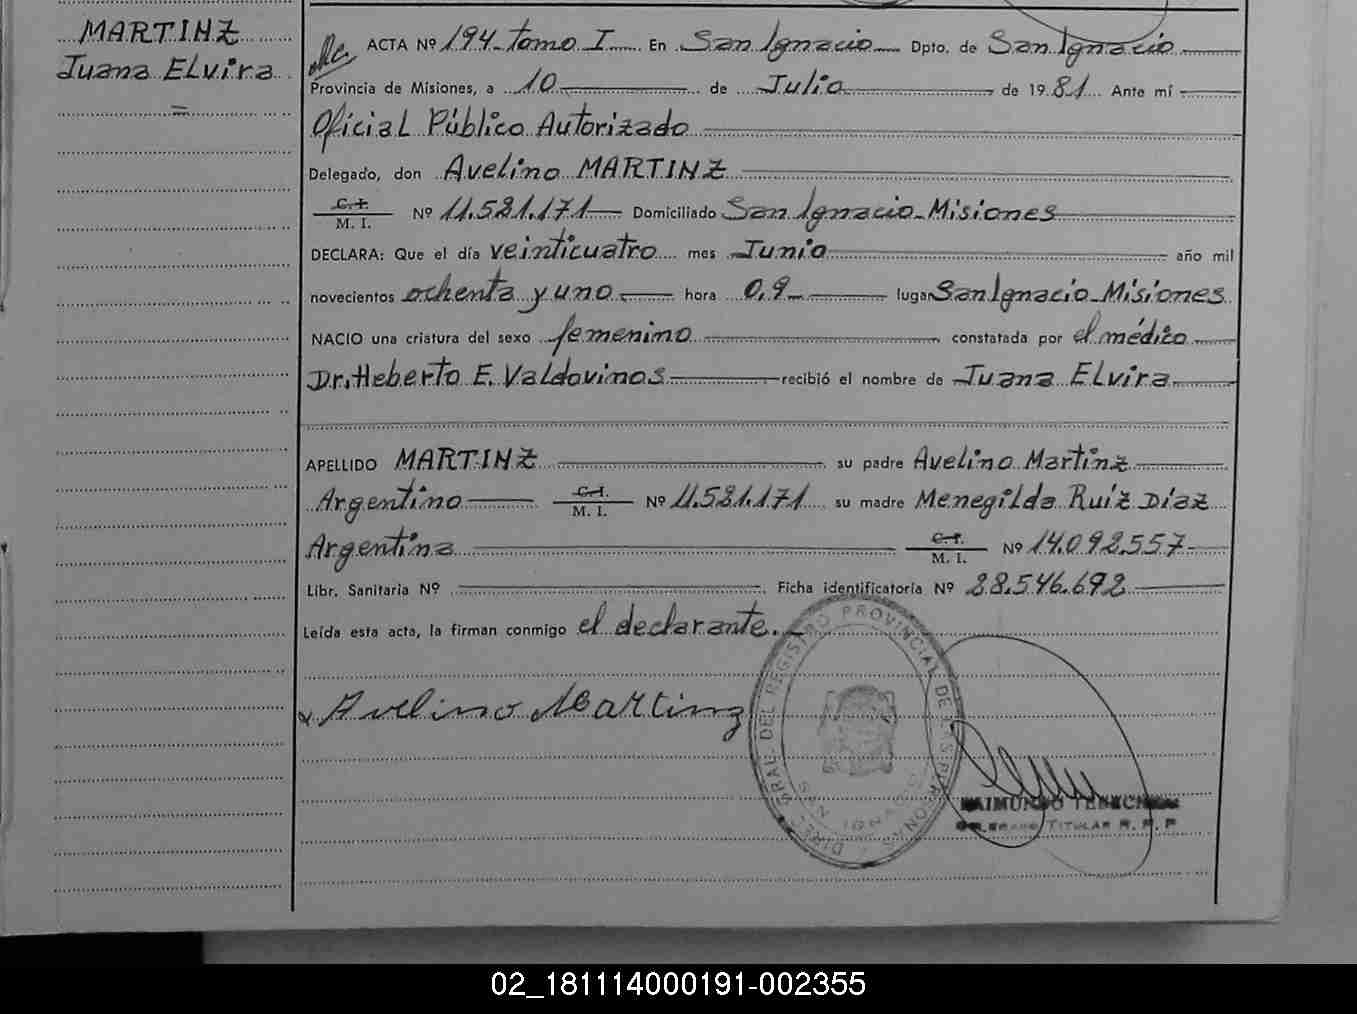 MARTINZ
Juana Elvira
=
ACTA Nº 194 - tomo I En San Ignacio Dpto. de San Ignacio
Provincia de Misiones, a 10 de Julio de 1981 Ante mí
Oficial Público Autorizado
Delegado, don Avelino MARTINZ
C. I.
M. I. Nº 11.581.171 Domiciliado San Ignacio - Misiones
DECLARA: Que el día veinticuatro mes Junio año mil
novecientos ochenta y uno hora 0,9 lugar San Ignacio - Misiones
NACIO una criatura del sexo femenino constatada por el médico
Dr. Heberto E. Valdovinos recibió el nombre de Juana Elvira
APELLIDO MARTINZ su padre Avelino Martinz
Argentino C. I. M. I. Nº 11.581.171 su madre Menegilda Ruíz Díaz
Argentina C. I. M. I. Nº 14.092.557
Libr. Sanitaria Nº Ficha identificatoria Nº 28.546.692
Leída esta acta, la firman conmigo el declarante.
x Avelino Martinz
DIREC. GRAL. DEL REGISTRO PROVINCIAL DE LAS PERSONAS
SAN IGNACIO
RAIMUNDO
TITULAR R. P. P
02_181114000191-002355